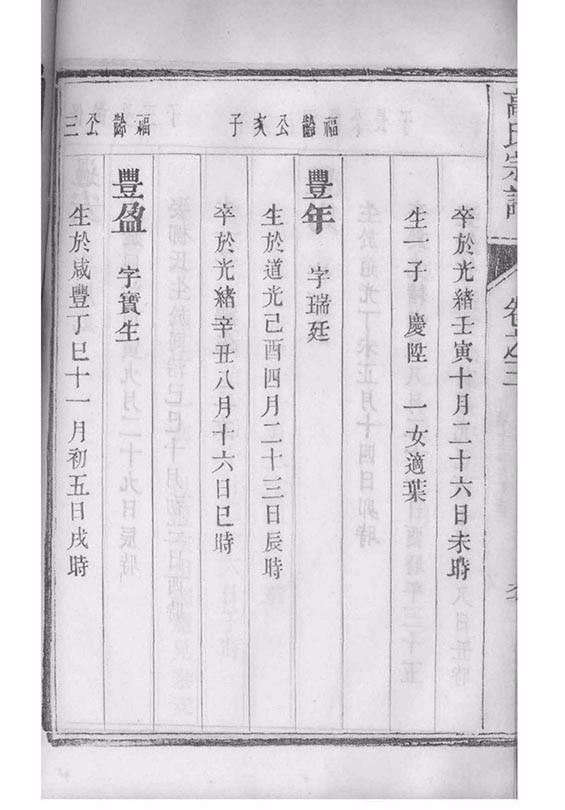 高氏宗譜 卷之三
卒於光緒壬寅十月二十六日未時
生一子 慶陞 一女適葉
福齡公次子
豐年 字瑞廷
生於道光己酉四月二十三日辰時
卒於光緒辛丑八月十六日巳時
福齡公三
豐盈 字寶生
生於咸豐丁巳十一月初五日戌時